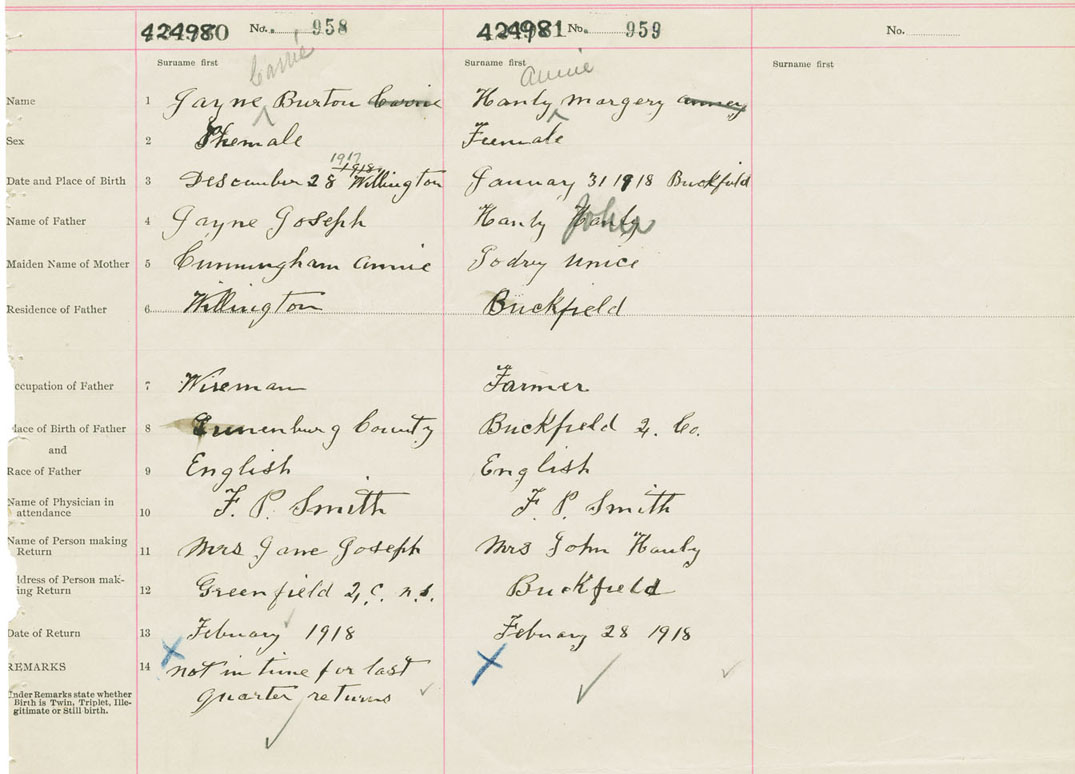 424980 No. 958 424981 No. 959 No.
Surname first Carrie Surname first Annie Surname first
Name 1 Jayne Burton Carrie Hanly Margery
Sex 2 Phemale Feemale
1917
Date and Place of Birth 3 Descember 28 1918 Willington January 31 1918 Buckfield
Name of Father 4 Jayne Joseph Hanly Hanly John
Maiden Name of Mother 5 Cunningham Annie Unice
Residence of Father 6 Willington Buckfield
ccupation of Father 7 Wireman Farmer
lace of Birth of Father 8 Lunenburg County Buckfield Q. Co.
and
Race of Father 9 English English
Name of Physician in
attendance 10 F. P. Smith F. P. Smith
Name of Person making
Return 11 Mrs Jane Joseph Mrs John Hanly
ddress of Person mak-
ing Return 12 Greenfield Q. C. n.s. Buckfield
Date of Return 13 February 1918 February 28 1918
REMARKS 14 not in time for last
quarter returns
nder Remarks state whether
Birth is Twin, Triplet, Ille-
gitimate or Still birth.